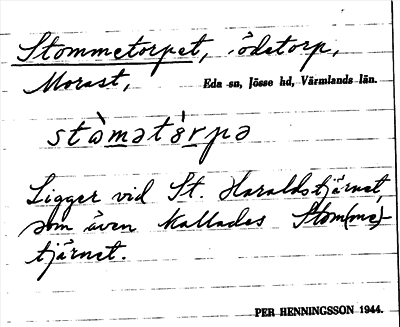 Stommetorpet, ödetorp,
Morast, Eda sn, Jösse hd, Värmlands län.
stòmətòrpə
Ligger vid St. Haraldstjärnet,
som även kallades Stom(me)-
tjärnet.
PER HENNINGSSON 1944.